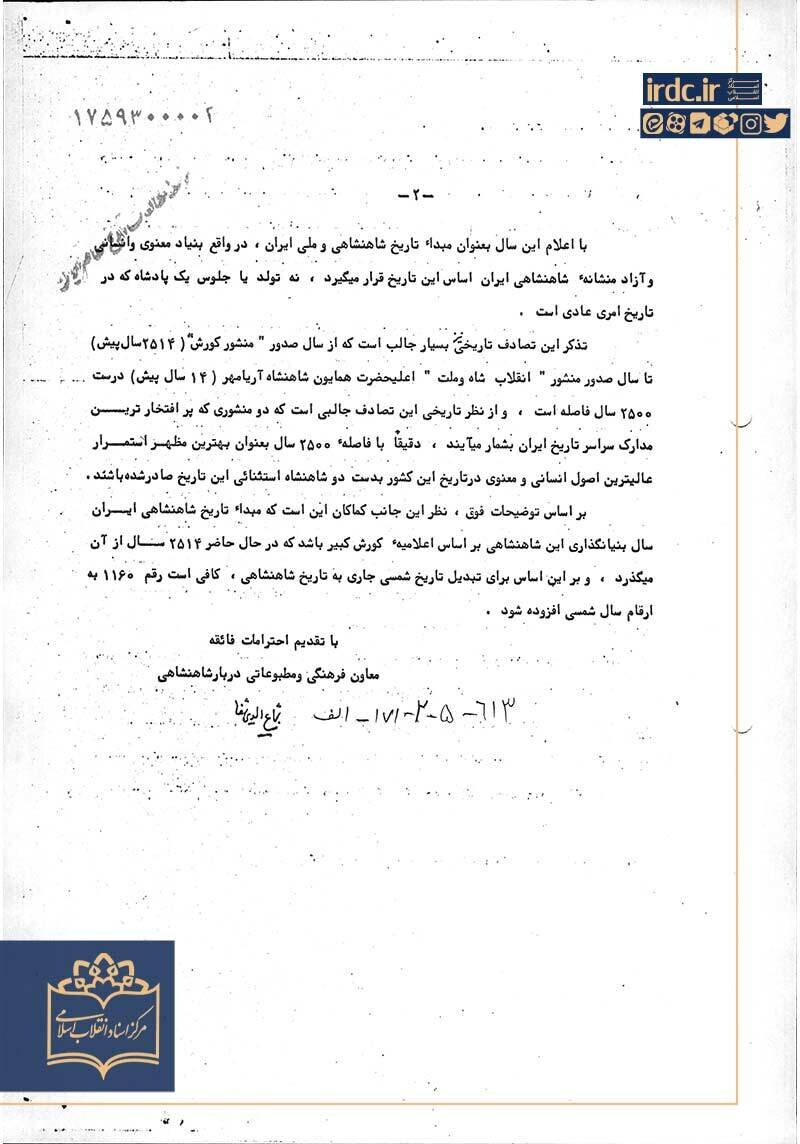 irdc.ir
مرکز
اسناد
انقلاب
اسلامی
۱۷۵۹۳۰۰۰۰۲
-۲-
با اعلام این سال بعنوان مبداء تاریخ شاهنشاهی و ملی ایران ، در واقع بنیاد معنوی وانسانی
وآزاد منشانهٔ شاهنشاهی ایران اساس این تاریخ قرار میگیرد ، نه تولد یا جلوس یک پادشاه که در
تاریخ امری عادی است .
تذکر این تصادف تاریخی نیز بسیار جالب است که از سال صدور " منشور کورش" ( ۲۵۱۴سال پیش)
تا سال صدور منشور " انقلاب شاه وملت " اعلیحضرت همایون شاهنشاه آریامهر ( ۱۴ سال پیش) درست
۲۵۰۰ سال فاصله است ، و از نظر تاریخی این تصادف جالبی است که دو منشوری که پر افتخار تریـــن
مدارک سراسر تاریخ ایران بشمار میآیند ، دقیقاً با فاصلهٔ ۲۵۰۰ سال بعنوان بهترین مظهـر استمـــرار
عالیترین اصول انسانی و معنوی درتاریخ این کشور بدست دو شاهنشاه استثنائی این تاریخ صادرشده‌باشند .
بر اساس توضیحات فوق ، نظر این جانب کماکان این است که مبداء تاریخ شاهنشاهی ایــران
سال بنیانگذاری این شاهنشاهی بر اساس اعلامیهٔ کورش کبیر باشد که در حال حاضر ۲۵۱۴ ســـال از آن
میگذرد ، و بر این اساس برای تبدیل تاریخ شمسی جاری به تاریخ شاهنشاهی ، کافی است رقم ۱۱۶۰ به
ارقام سال شمسی افزوده شود .
با تقدیم احترامات فائقه
معاون فرهنگی ومطبوعاتی دربارشاهنشاهی
شجاع الدین شفا
۶۱۳-۵-۲-۱۷۱-الف
مرکز اسناد انقلاب اسلامی